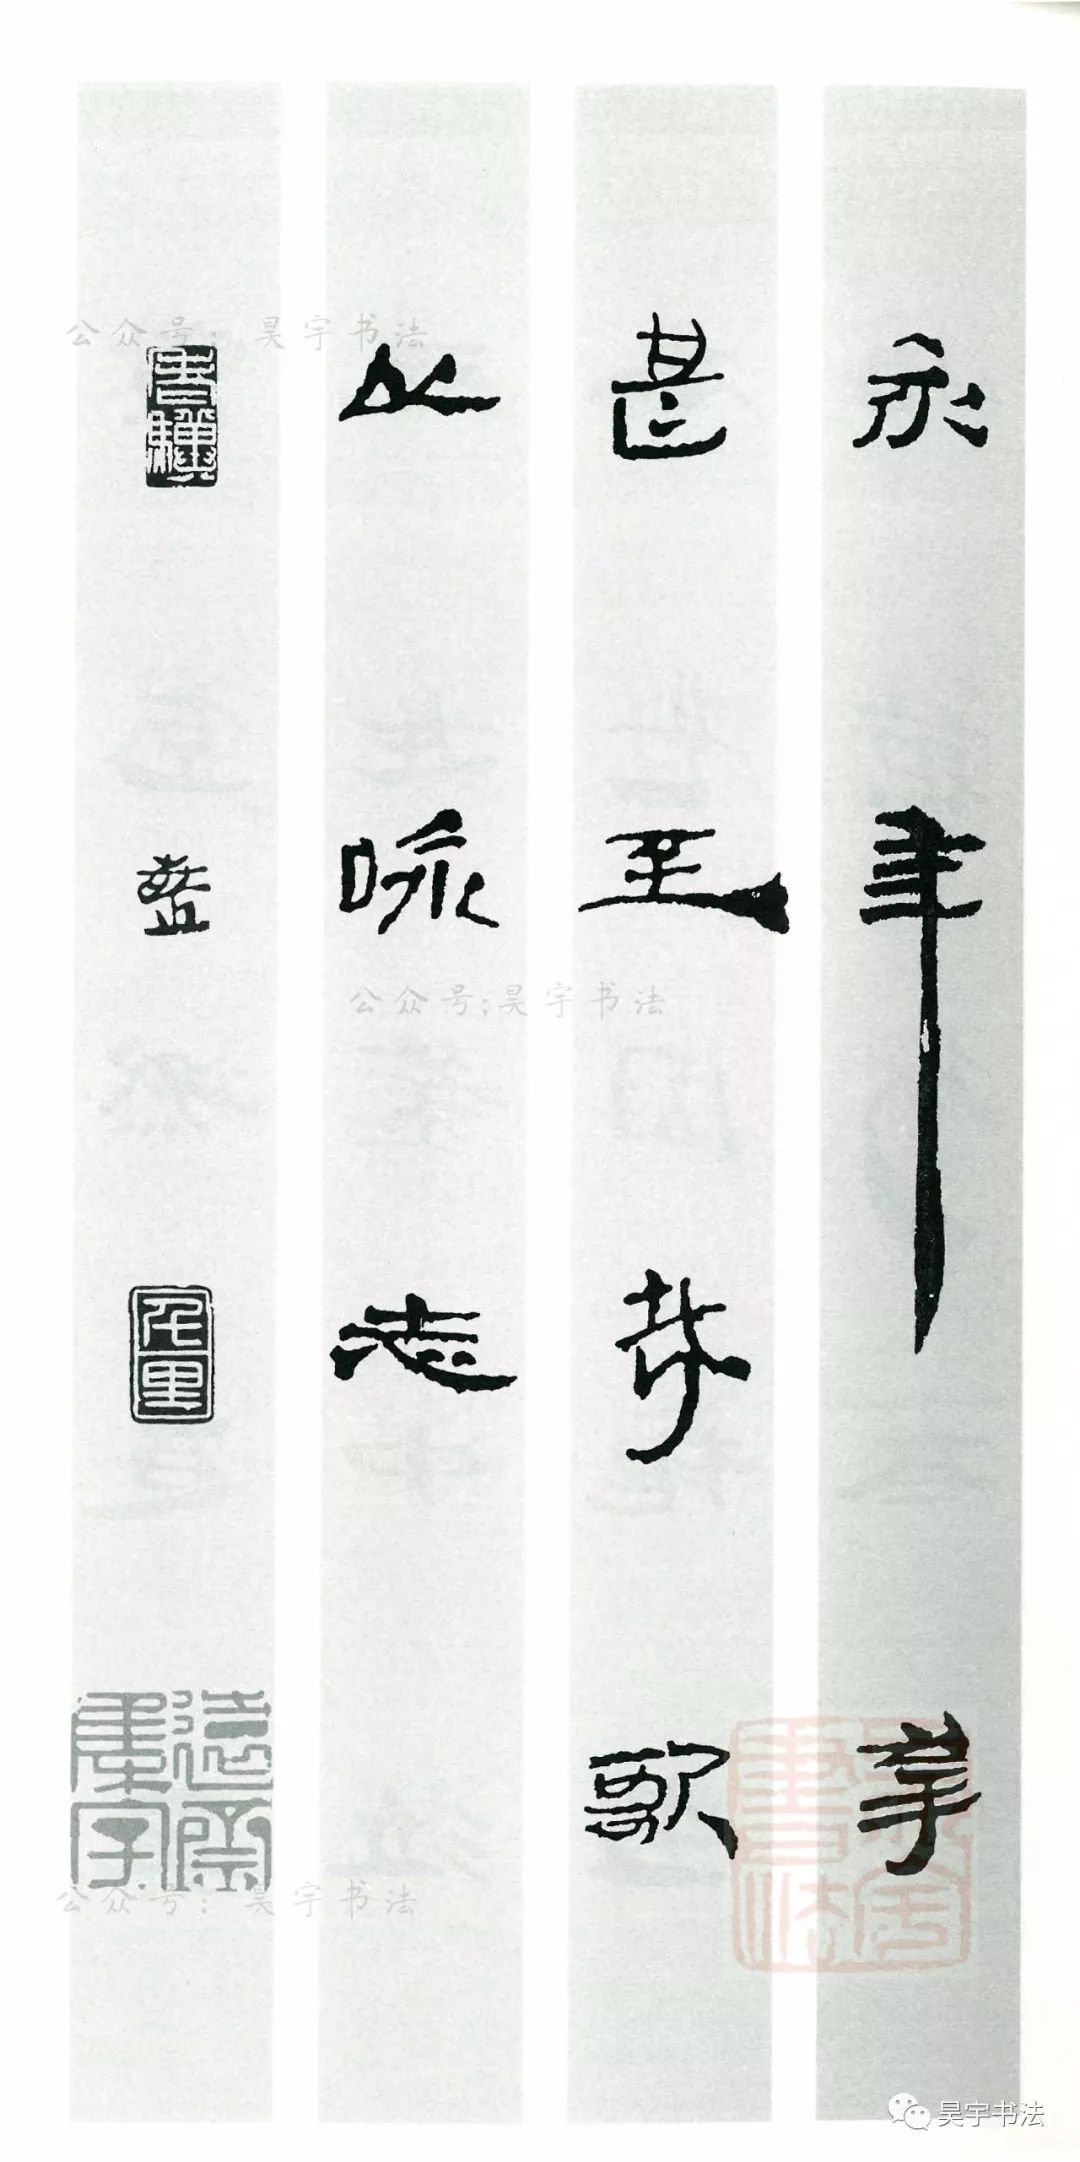 永年幸
甚至哉歌
以咏志
公众号:昊宇书法
公众号:昊宇书法
公众号:昊宇书法
昊宇書法
昊宇书法